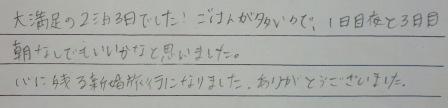 大満足の2泊3日でした！ごはんが多いので、1日目夜と3日目
朝なしでもいいかなと思いました。
心に残る新婚旅行になりました。ありがとうございました。